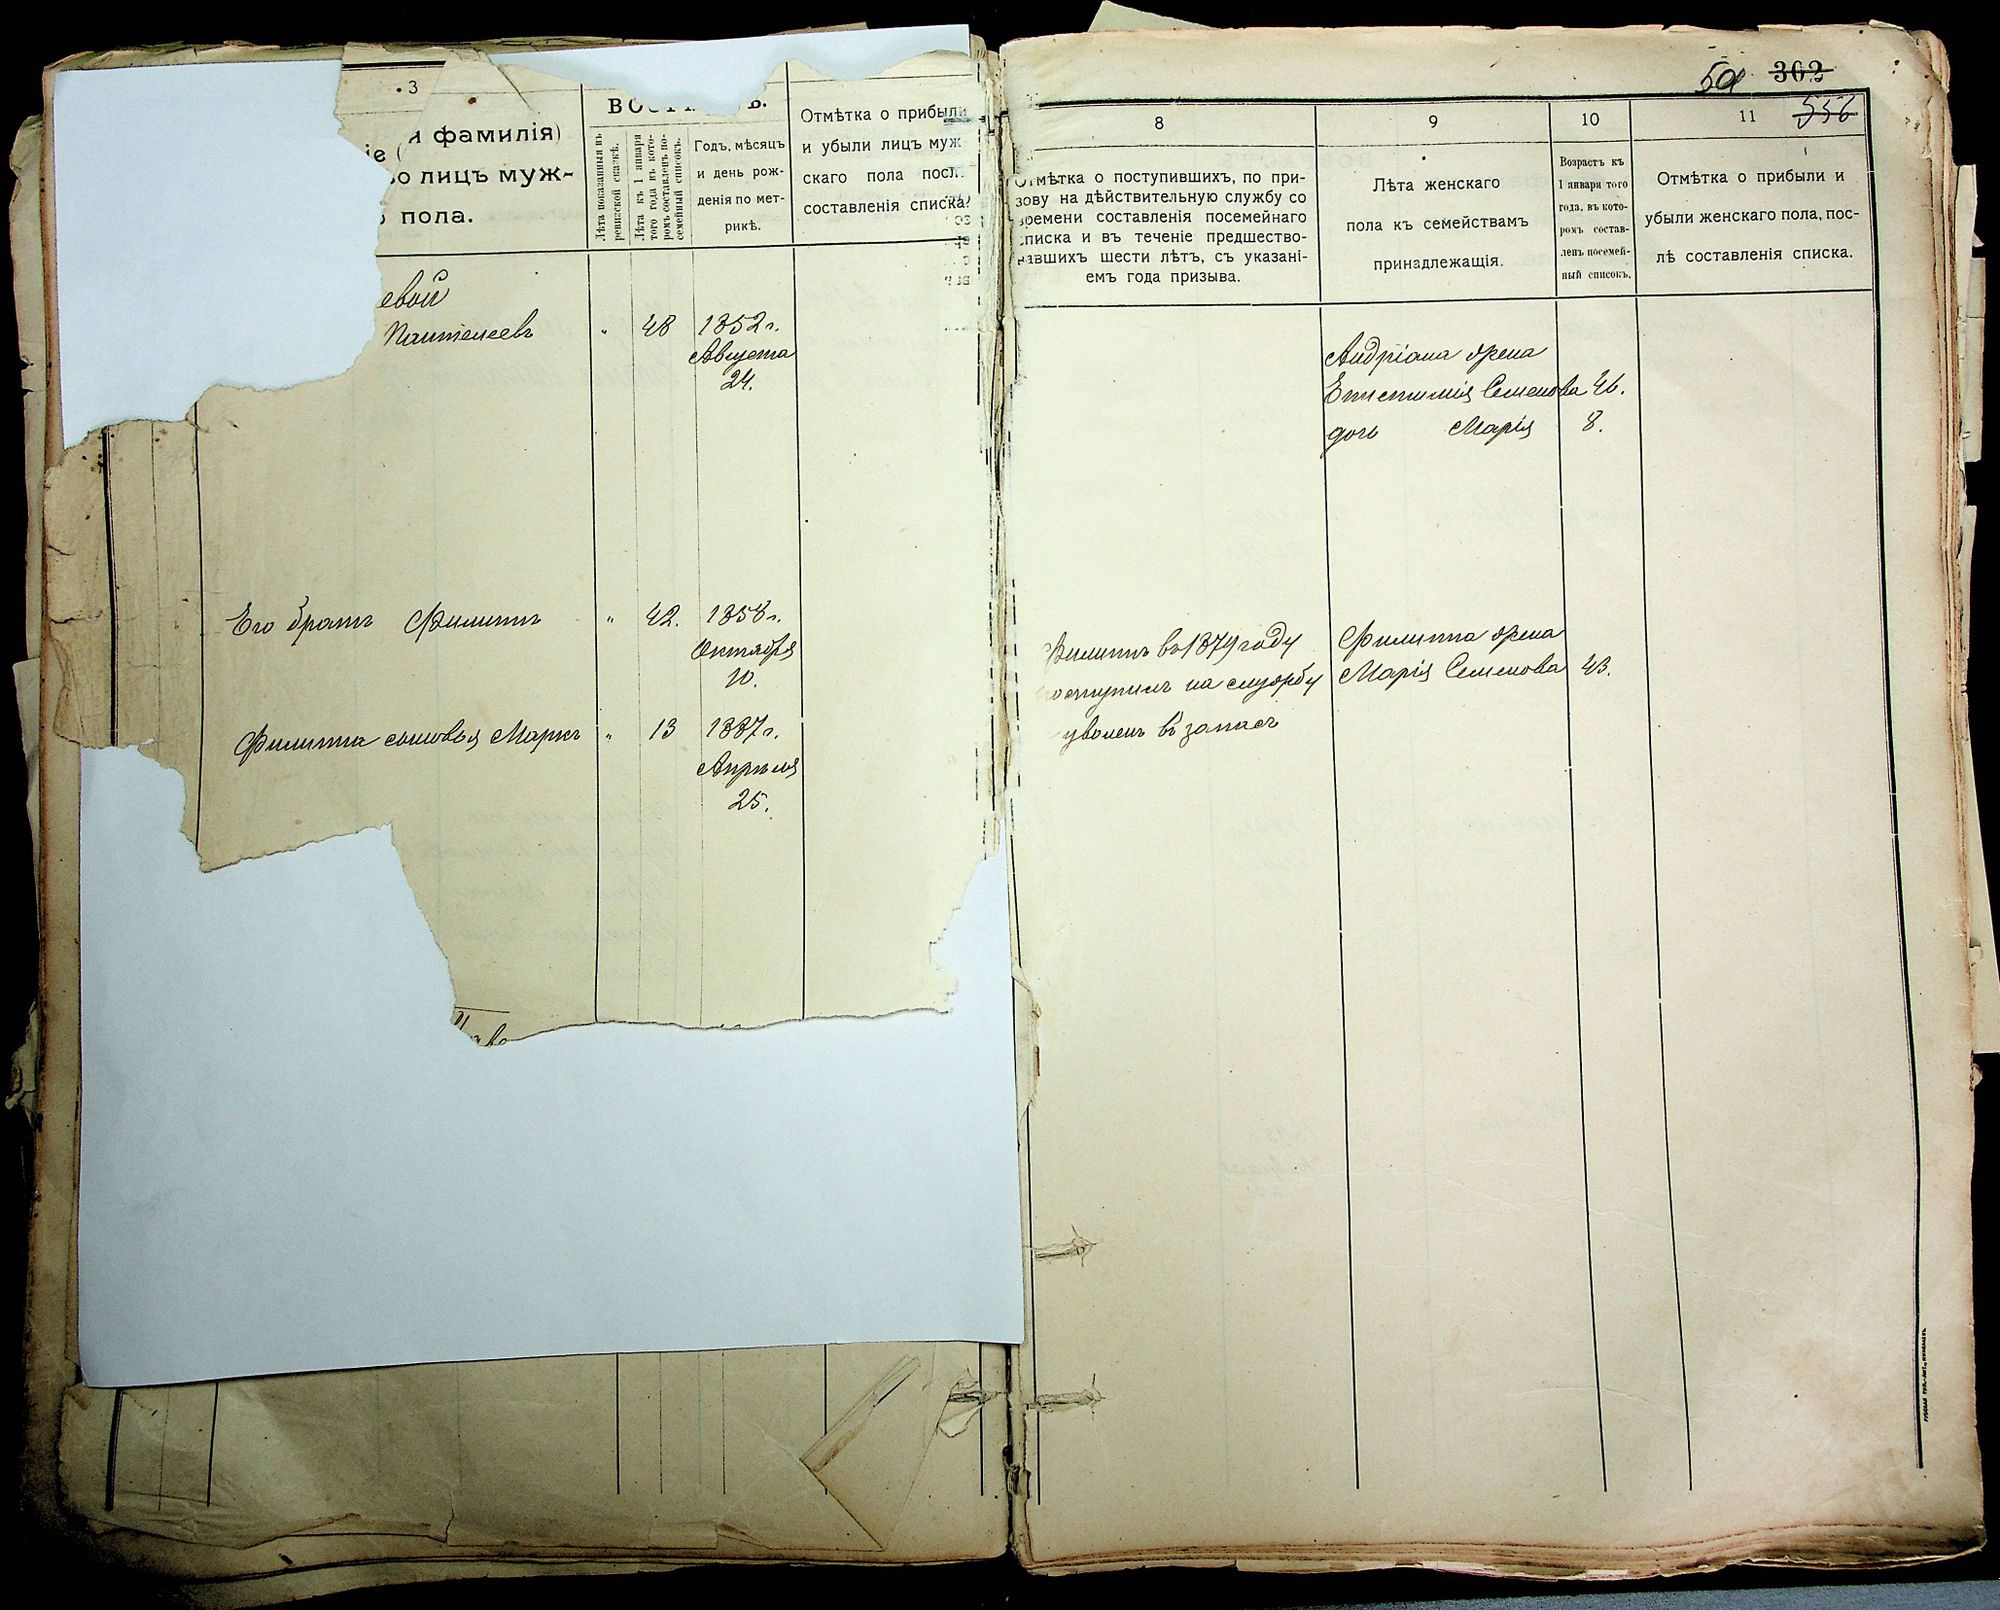 3
я фамилія)
іе (
во лицъ муж-
о пола.
Лѣта показанныя въ
ревизской сказкѣ.
Лѣта къ 1 января
того года въ кото-
ромъ составленъ по-
семейный списокъ.
Годъ, мѣсяцъ
и день рож-
денія по мет-
рикѣ.
Отмѣтка о прибыли
и убыли лицъ муж
скаго пола посл.
составленія списка.
евой
Пантелеевъ " 48 1852 г.
Августа
24.
Его братъ Филиппъ " 42. 1858 г.
Октября
10.
Филиппа сыновья Маркъ " 13 1887 г.
Апрѣля
25.
50 302
556
8 9 10 11
Отмѣтка о поступившихъ, по при-
зову на дѣйствительную службу со
времени составленія посемейнаго
списка и въ теченіе предшество-
вавшихъ шести лѣтъ, съ указані-
емъ года призыва.
Лѣта женскаго
пола къ семействамъ
принадлежащія.
Возрастъ къ
1 января того
года, въ кото-
ромъ состав-
ленъ посемей-
ный списокъ.
Отмѣтка о прибыли и
убыли женскаго пола, пос-
лѣ составленія списка.
Андріана жена
Епистимія Семенова 46.
дочь Марія 8.
Филиппъ въ 1879 году
поступилъ на службу
уволенъ въ запасъ
Филиппа жена
Марія Семенова 43.